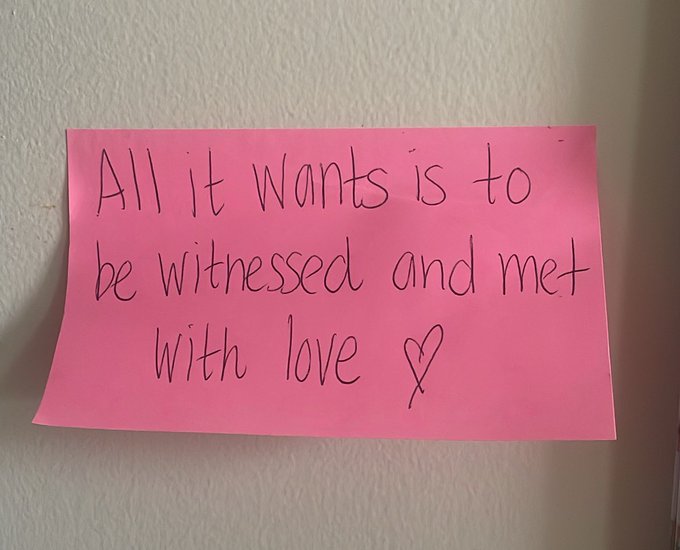 All it wants is to
be witnessed and met
with love ♡